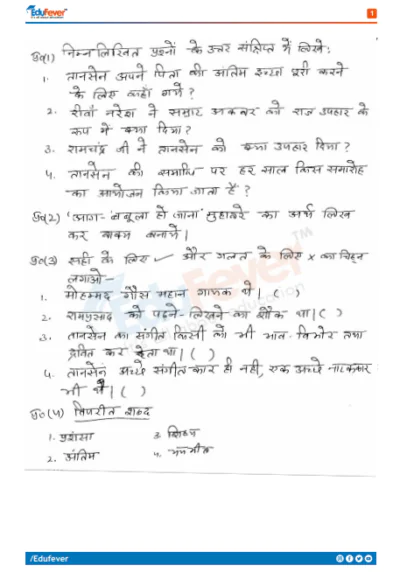 EduFever
1
प्र०(1) निम्न लिखित प्रश्नों के उत्तर संक्षिप्त में लिखे:
1. तानसेन अपने पिता की अंतिम इच्छा पूरी करने
के लिए कहाँ गये?
2. रीवाँ नरेश ने सम्राट अकबर को राज उपहार के
रूप में क्या दिया?
3. रामचंद्र जी ने तानसेन को क्या उपहार दिया?
4. तानसेन की समाधि पर हर साल किस समारोह
का आयोजन किया जाता है?
प्र०(2) 'आग-बबूला हो जाना' मुहावरे का अर्थ लिख
कर वाक्य बनाये।
प्र०(3) सही के लिए ✓ और गलत के लिए × का चिह्न
लगाओ-
1. मोहम्मद गौस महान गायक थे। ( )
2. रामप्रसाद को पढ़ने-लिखने का शौक था। ( )
3. तानसेन का संगीत किसी को भी भाव-विभोर तथा
द्रवित कर देता था। ( )
4. तानसेन अच्छे संगीत कार ही नहीं, एक अच्छे नाटककार
भी थे। ( )
प्र०(4) विपरीत शब्द
1. प्रशंसा
2. अंतिम
3.
4. भयभीत
/Edufever